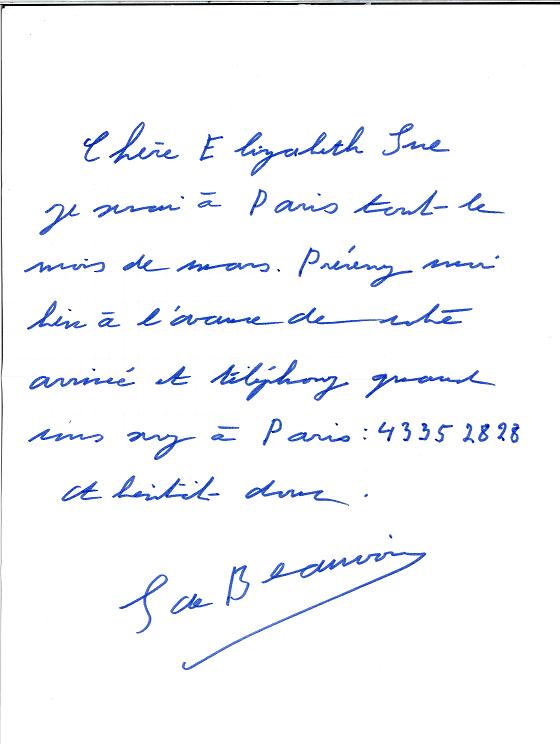 Chère Elizabeth Sue
je serai à Paris tout le
mois de mars. Prévenez moi
bien à l'avance de votre
arrivée et téléphonez quand
vous serez à Paris : 4335 2828
et bientôt donc.
S de Beauvoir